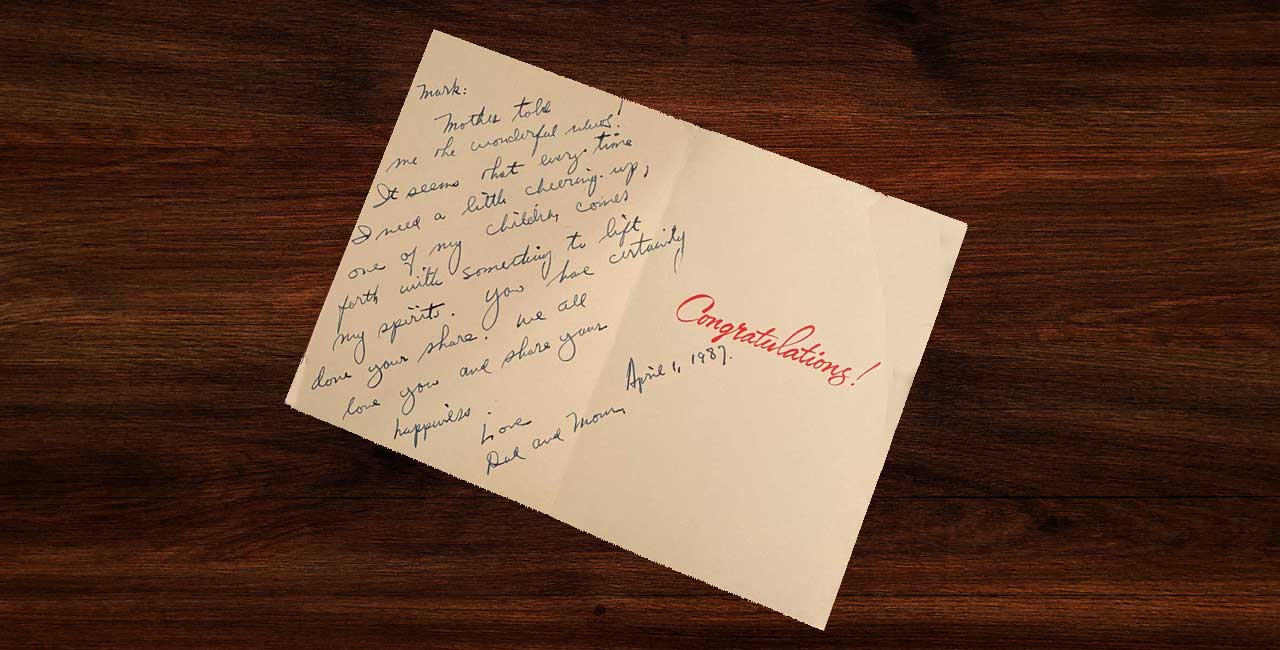 Mark:
Mother told
me the wonderful news!
It seems that every time
I need a little cheering up,
one of my children comes
forth with something to lift
my spirits. You have certainly
done your share. We all
love you and share your
happiness.
Love
Dad and Mom,
April 1, 1987.
Congratulations!